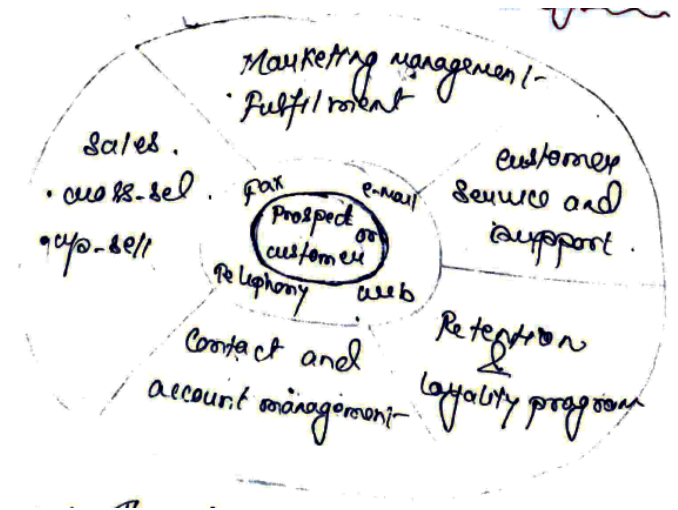 Marketing management
• Fulfilment
Sales.
• cross-sel
• up-sell
customer
service and
support.
Fax
e-mail
Prospect
or
customer
Telephony
web
Contact and
account management
Retention
&
loyality program